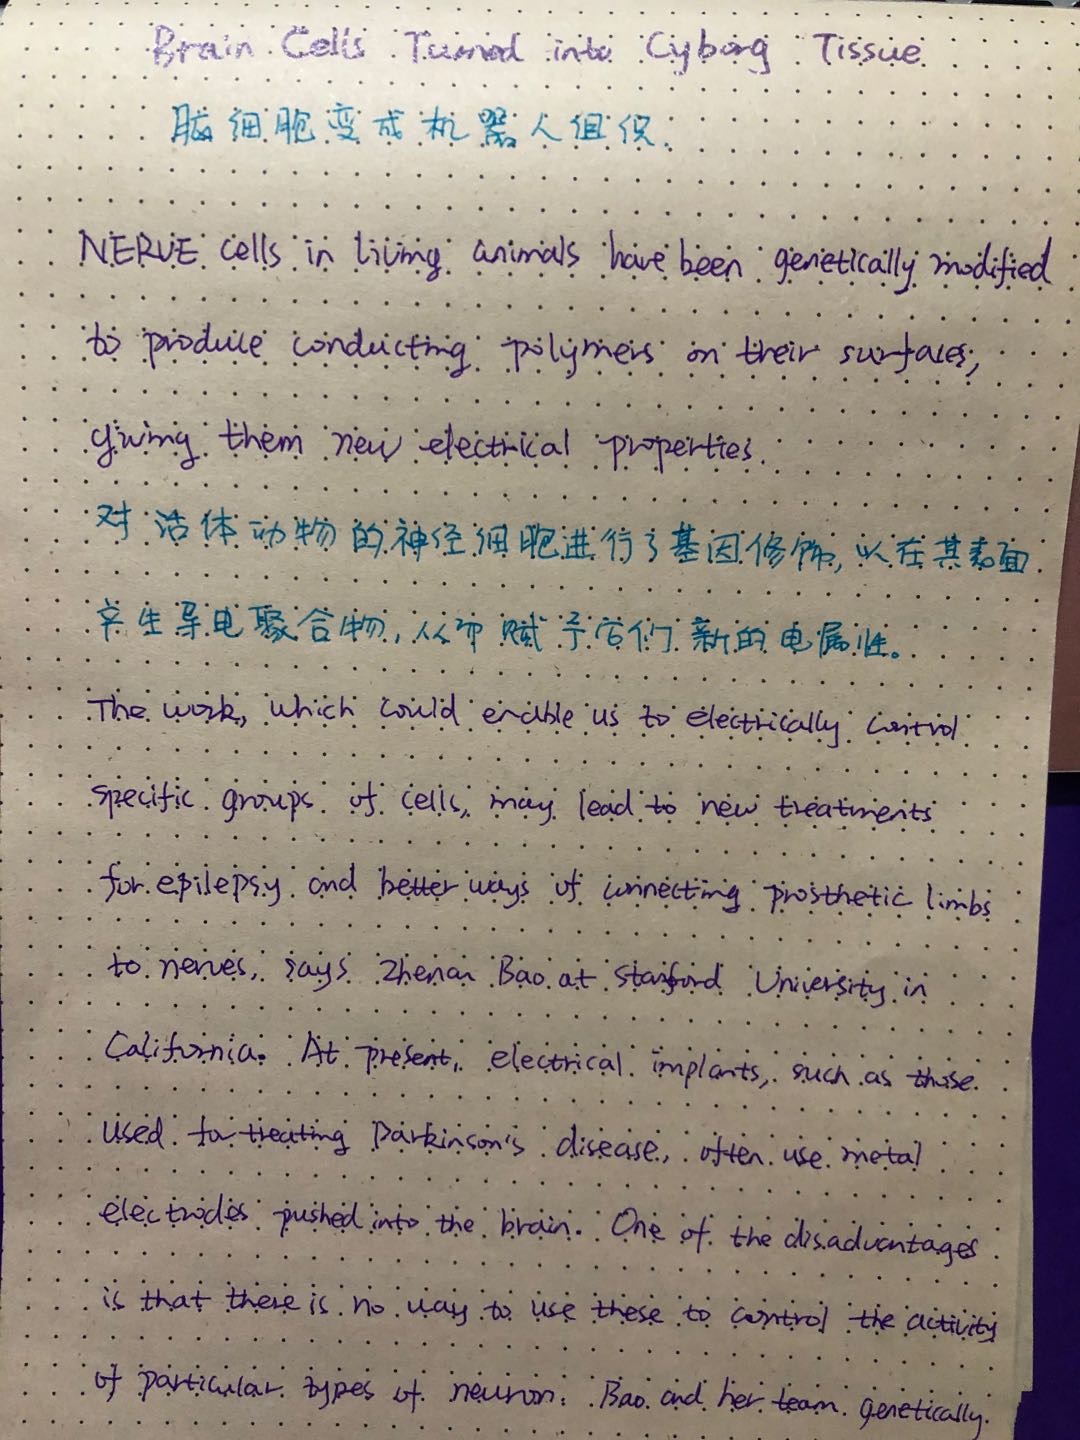 Brain Cells Turned into Cyborg Tissue
脑细胞变成机器人组织.
NERVE cells in living animals have been genetically modified
to produce conducting polymers on their surfaces,
giving them new electrical properties.
对活体动物的神经细胞进行了基因修饰,以在其表面
产生导电聚合物,从而赋予它们新的电属性。
The work, which could enable us to electrically control
specific groups of cells, may lead to new treatments
for epilepsy and better ways of connecting prosthetic limbs
to nerves, says Zhenan Bao at Stanford University in
California. At present, electrical implants, such as those
used for treating Parkinson's disease, often use metal
electrodes pushed into the brain. One of the disadvantages
is that there is no way to use these to control the activity
of particular types of neuron. Bao and her team genetically